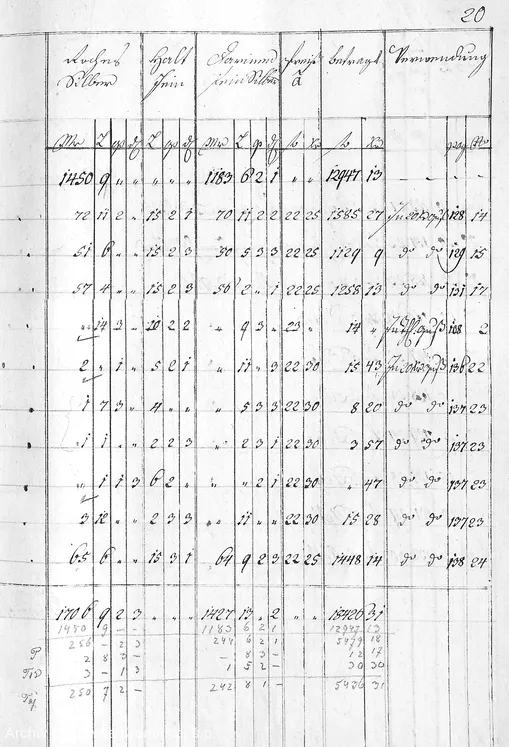 20
Rohes Silber | Halt fein | Garnimed fein Silber | Preiß à | betragt | Verwendung
Mr L qr ₰ | L qr ₰ | Mr L qr ₰ | fl Xr | fl Xr | pag No
1450 9 „ „ | „ „ „ | 1183 6 2 1 | „ „ | 12947 13 | - - -
72 11 2 „ | 15 2 1 | 70 11 2 2 | 22 25 | 1585 27 | 128 14
51 6 „ „ | 15 2 3 | 50 5 3 3 | 22 25 | 1129 9 | do do 129 15
57 4 „ „ | 15 2 3 | 56 2 „ 1 | 22 25 | 1258 13 | do do 131 17
„ 14 3 „ | 10 2 2 | „ 9 3 „ | 23 „ | 14 „ | 108 2
2 „ 1 „ | 5 2 1 | „ 11 „ 3 | 22 30 | 15 43 | 136 22
1 7 3 „ | 4 „ „ | „ 5 3 3 | 22 30 | 8 20 | do do 137 23
1 1 „ „ | 2 2 3 | „ 2 3 1 | 22 30 | 3 57 | do do 137 23
„ 1 1 3 | 6 2 „ | „ „ 2 1 | 22 30 | „ 47 | do do 137 23
3 12 „ „ | 2 3 3 | „ 11 „ „ | 22 30 | 15 28 | do do 137 23
65 6 „ „ | 15 3 1 | 64 9 2 3 | 22 25 | 1448 14 | do do 138 24
1706 9 2 3 | „ „ „ | 1427 13 „ 2 | „ „ | 18426 31
1450 9 - - | 1183 6 2 1 | 12947 13
256 - 2 3 | 244 6 2 1 | 5479 18
P 2 8 3 - | - 8 3 - | 12 17
3 - 1 3 | 1 5 2 - | 30 30
250 7 2 - | 242 8 1 - | 5436 31